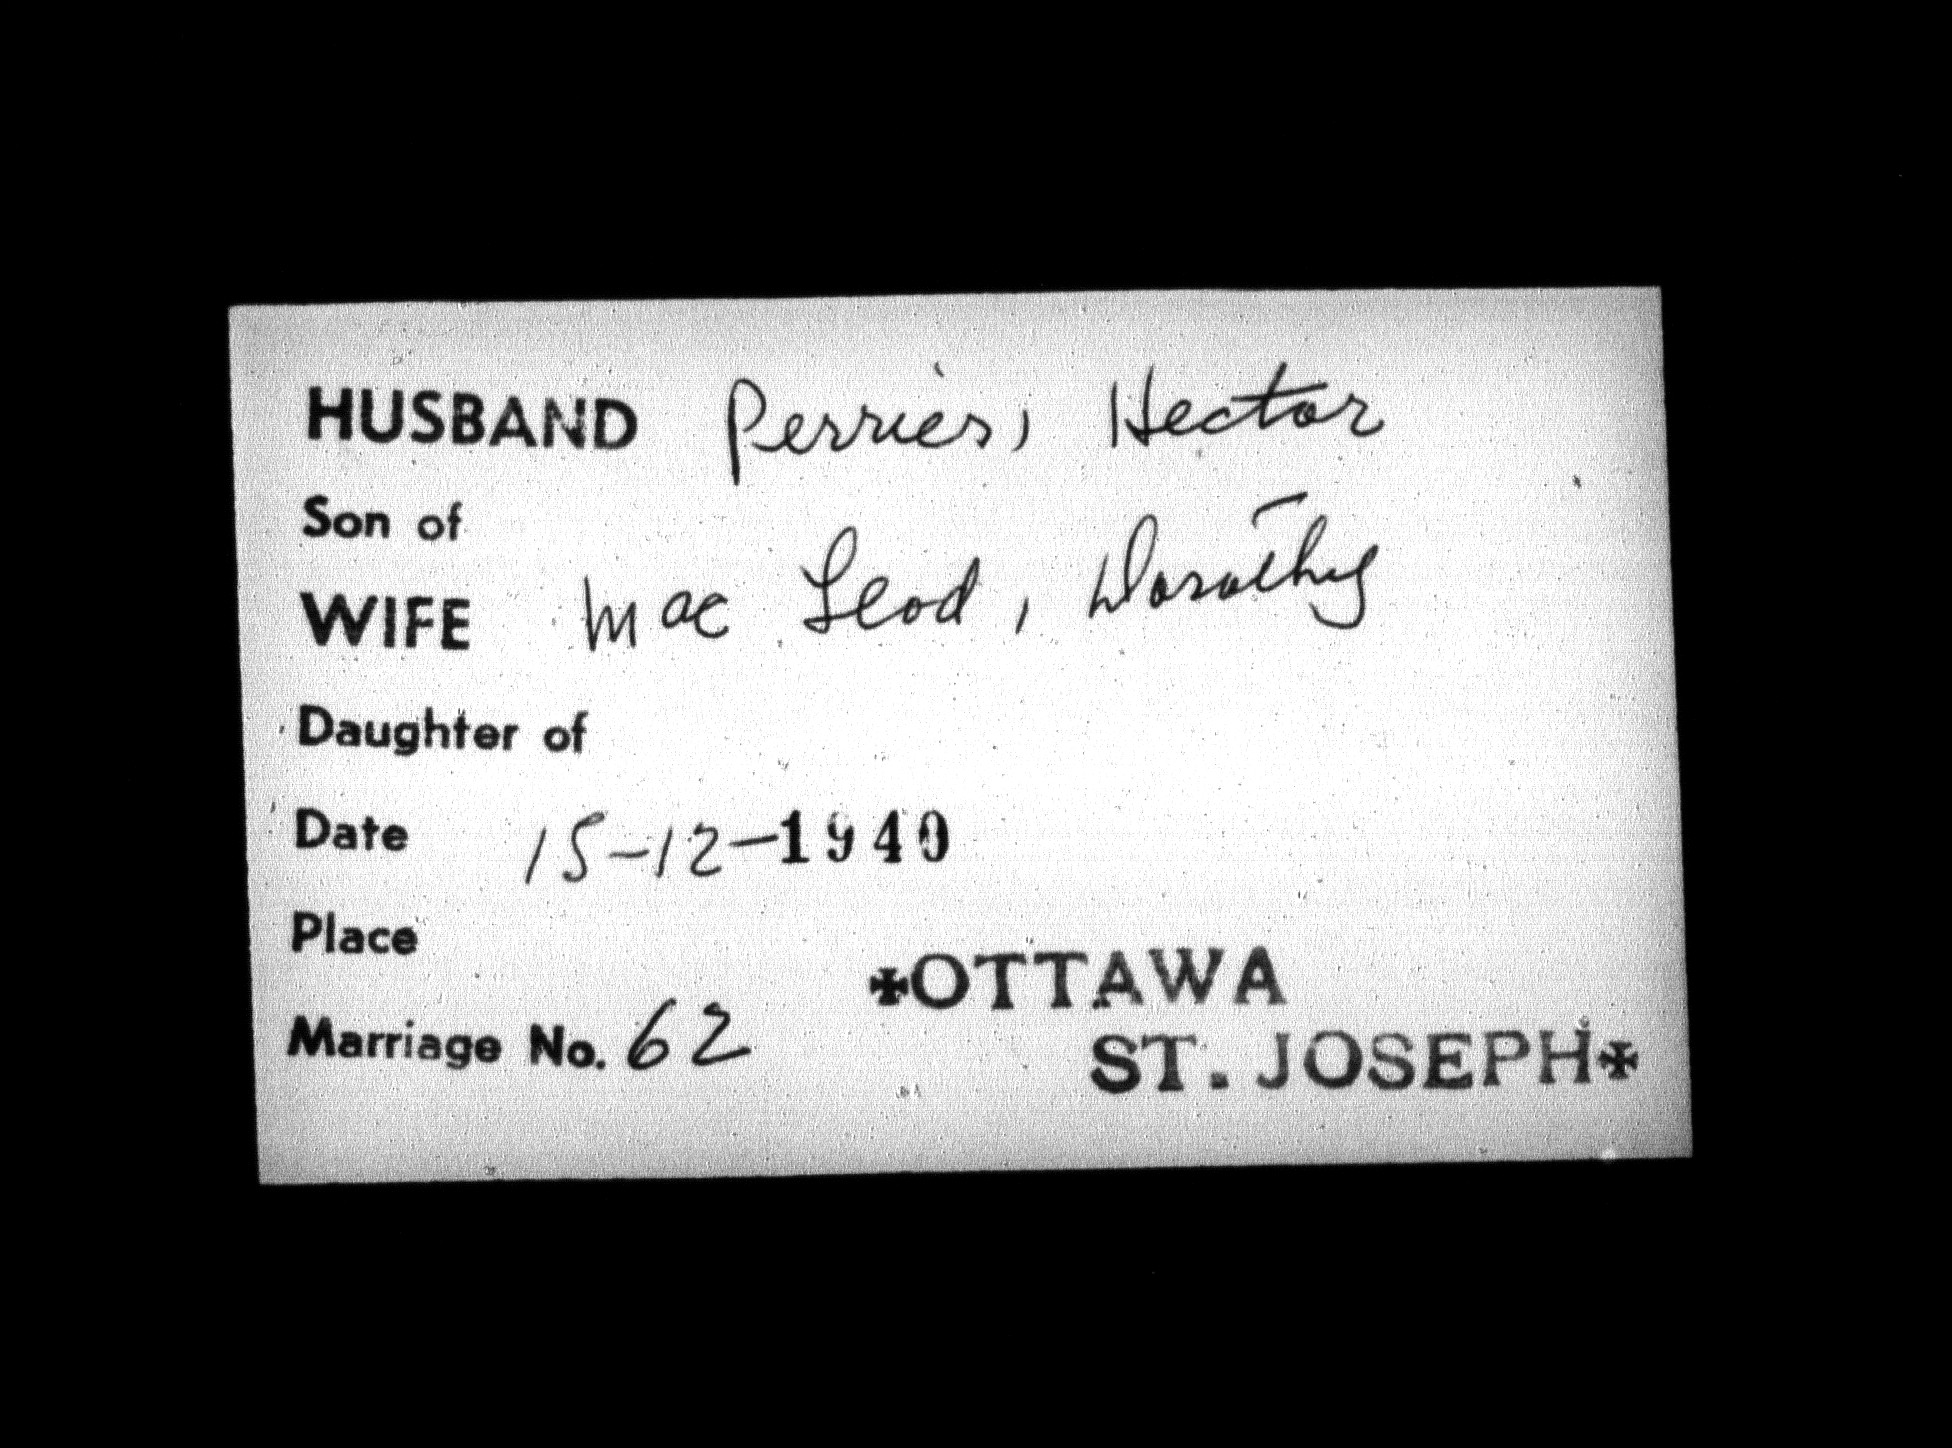 HUSBAND Perrier, Hector
Son of
WIFE Mac Leod, Dorothy
Daughter of
Date 15-12-1940
Place
✠OTTAWA
Marriage No. 62
ST. JOSEPH✠